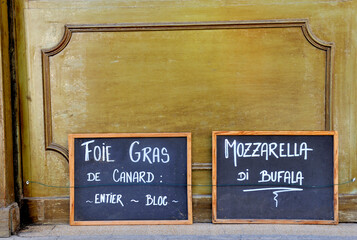 Foie Gras
de Canard :
~ Entier ~ Bloc ~
Mozzarella
di Bufala